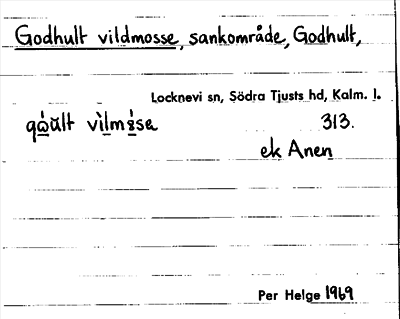 Godhult vildmosse, sankområde, Godhult,
Locknevi sn, Södra Tjusts hd, Kalm. l.
313.
ek Anen
Per Helge 1969